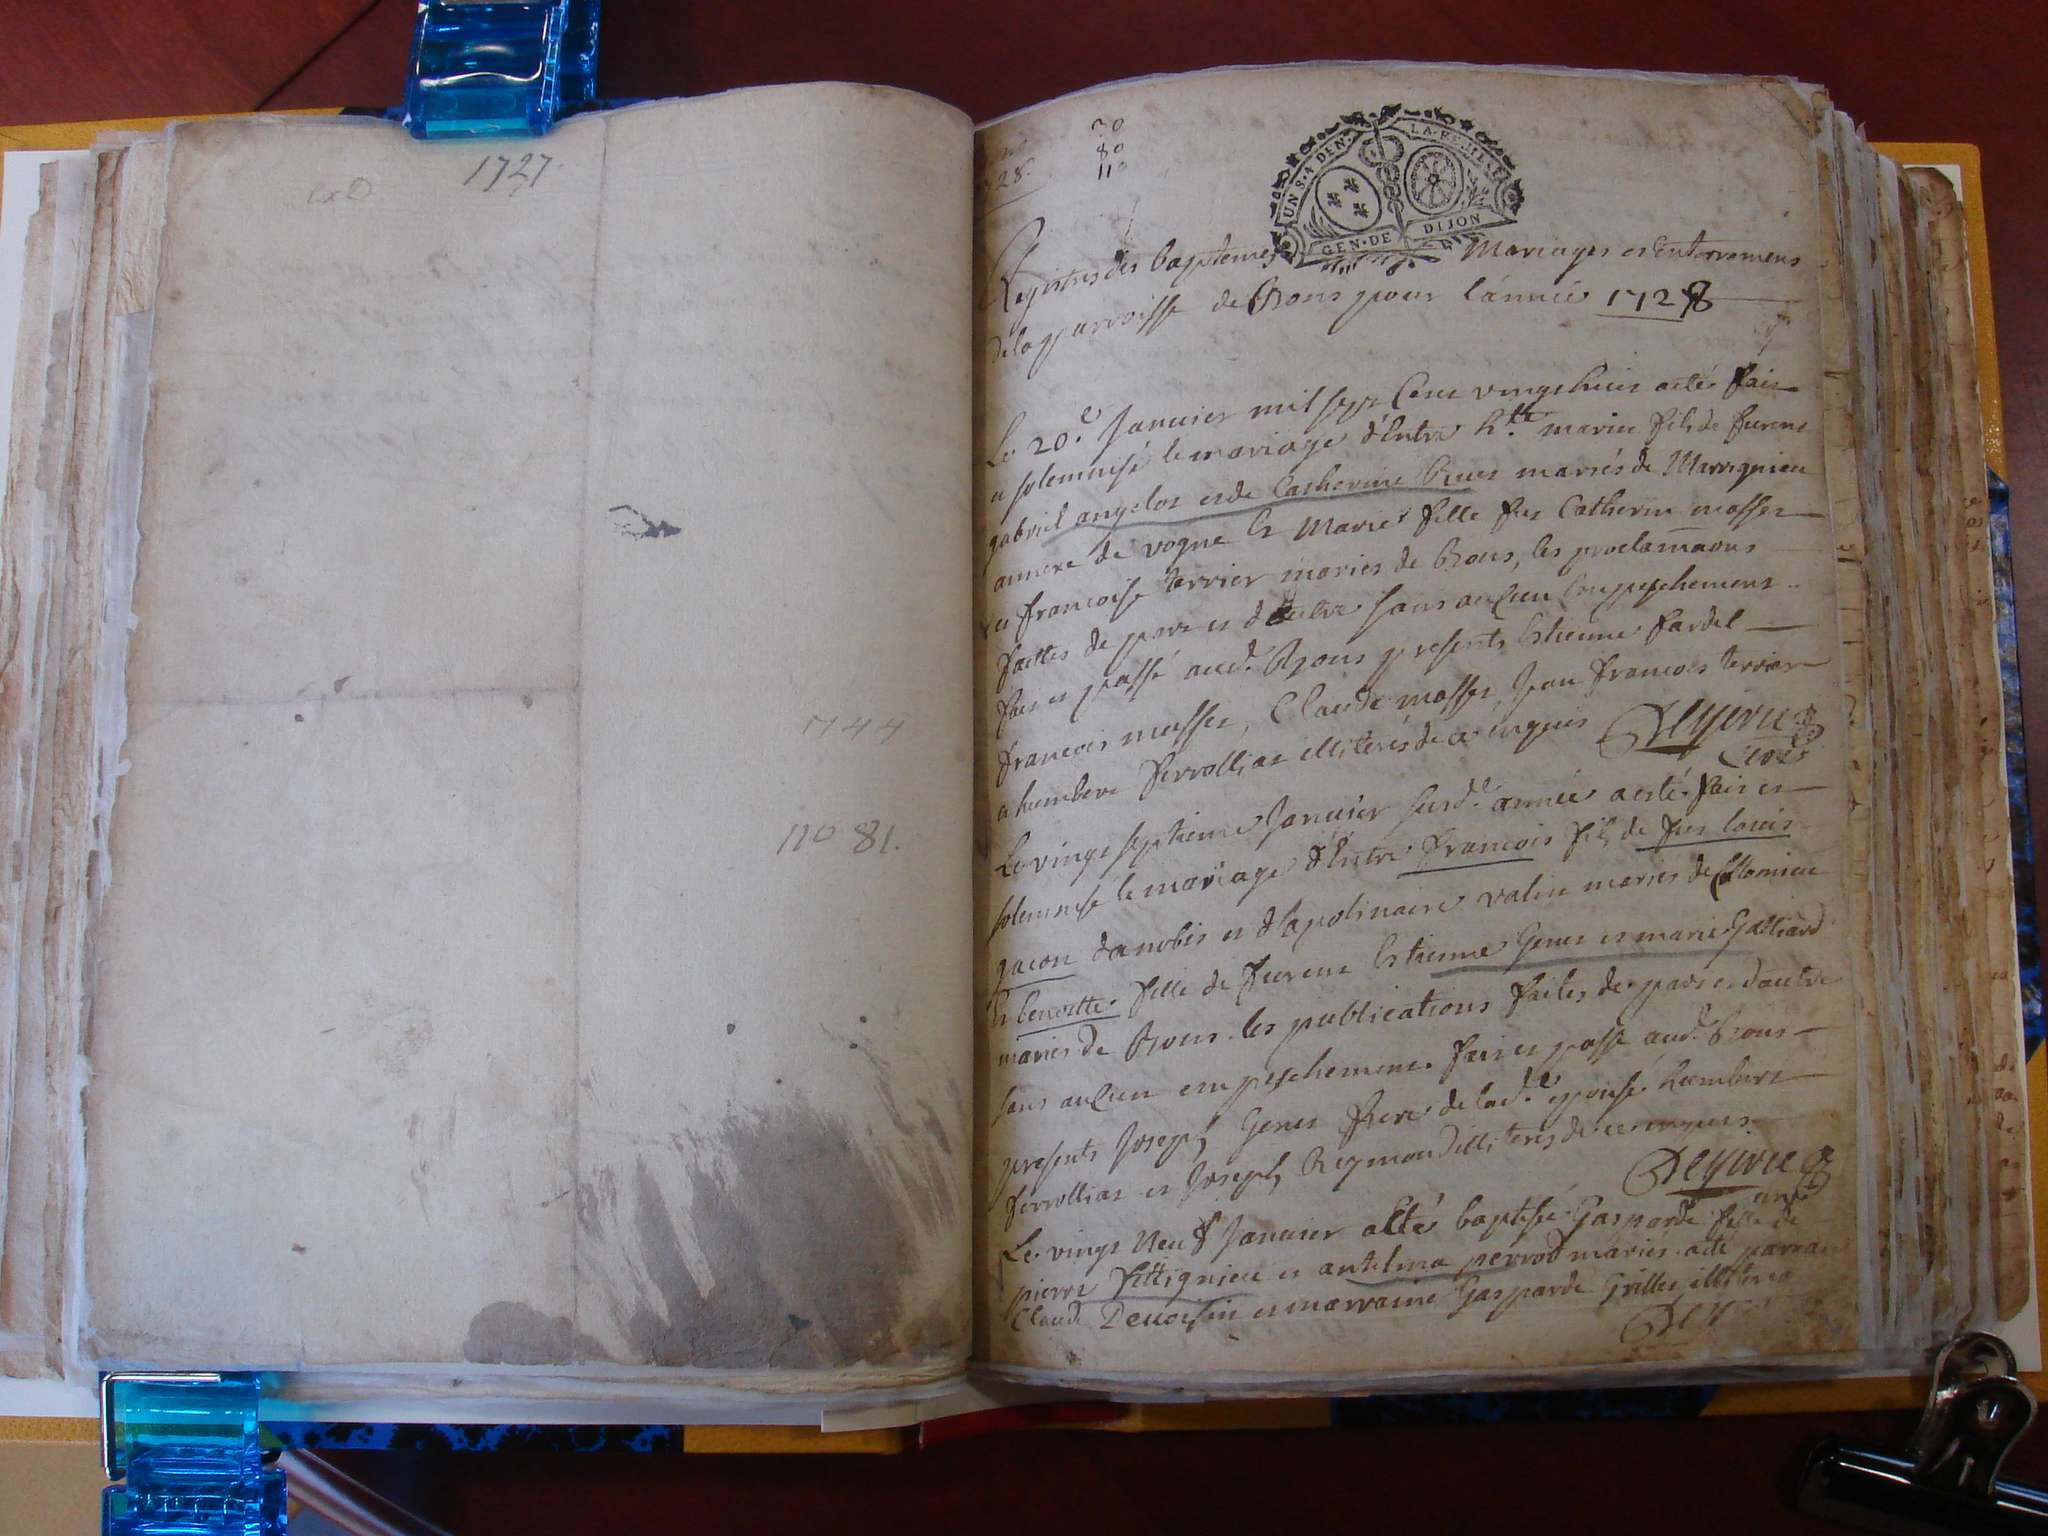 1727.
1744
110 81.
30
80
110
28.
UN S. 4 DEN. LA FEUILLE
GEN. DE DIJON
Registres des baptemes Mariages et Enterremens
de la parroisse de Rons pour l'année 1728
Le 20.e Januier mil sept Cent vingt huict a esté fait
a solemnisé le mariage d'Entre h.ble marin fils de furent
gabriel angelot et de Catherine Buet mariés de Marignieu
annexe de vogne Et Marie fille fut Catherin mosset
et francoise terrier mariés de Rons, les proclamaons
faittes de part et d'autre sans auCun Empeschement
fait et passé aud. Rons presents Estienne fardel
francois mosset, Claude mosset, Jean francois terrier
a humbert ferrolliat illiterés de ce enquis Deyvrieu
curé
Le vingt septieme Januier susd.e année a esté fait et
solemnisé le mariage d'Entre francois fils de fut louis
gacon danobis et d'apolinaire valin mariés de Collomieu
Et benoitte fille de furent Estienne Genet et marie Galliard
mariés de Rons les publications faites de part et d'autre
sans auCun empeschement fait et passé aud. Rons
presents Joseph Genet frere de lad.e epouse humbert
ferrolliat et Joseph Reymond illiterés de ce enquis
Deyvrieu
curé
Le vingt neuf Januier a esté baptisée Gasparde fille de
pierre fittignieu et antelma perrod mariés a eté parrain
Claude Deuoisin et marraine Gasparde Grillet illiteres